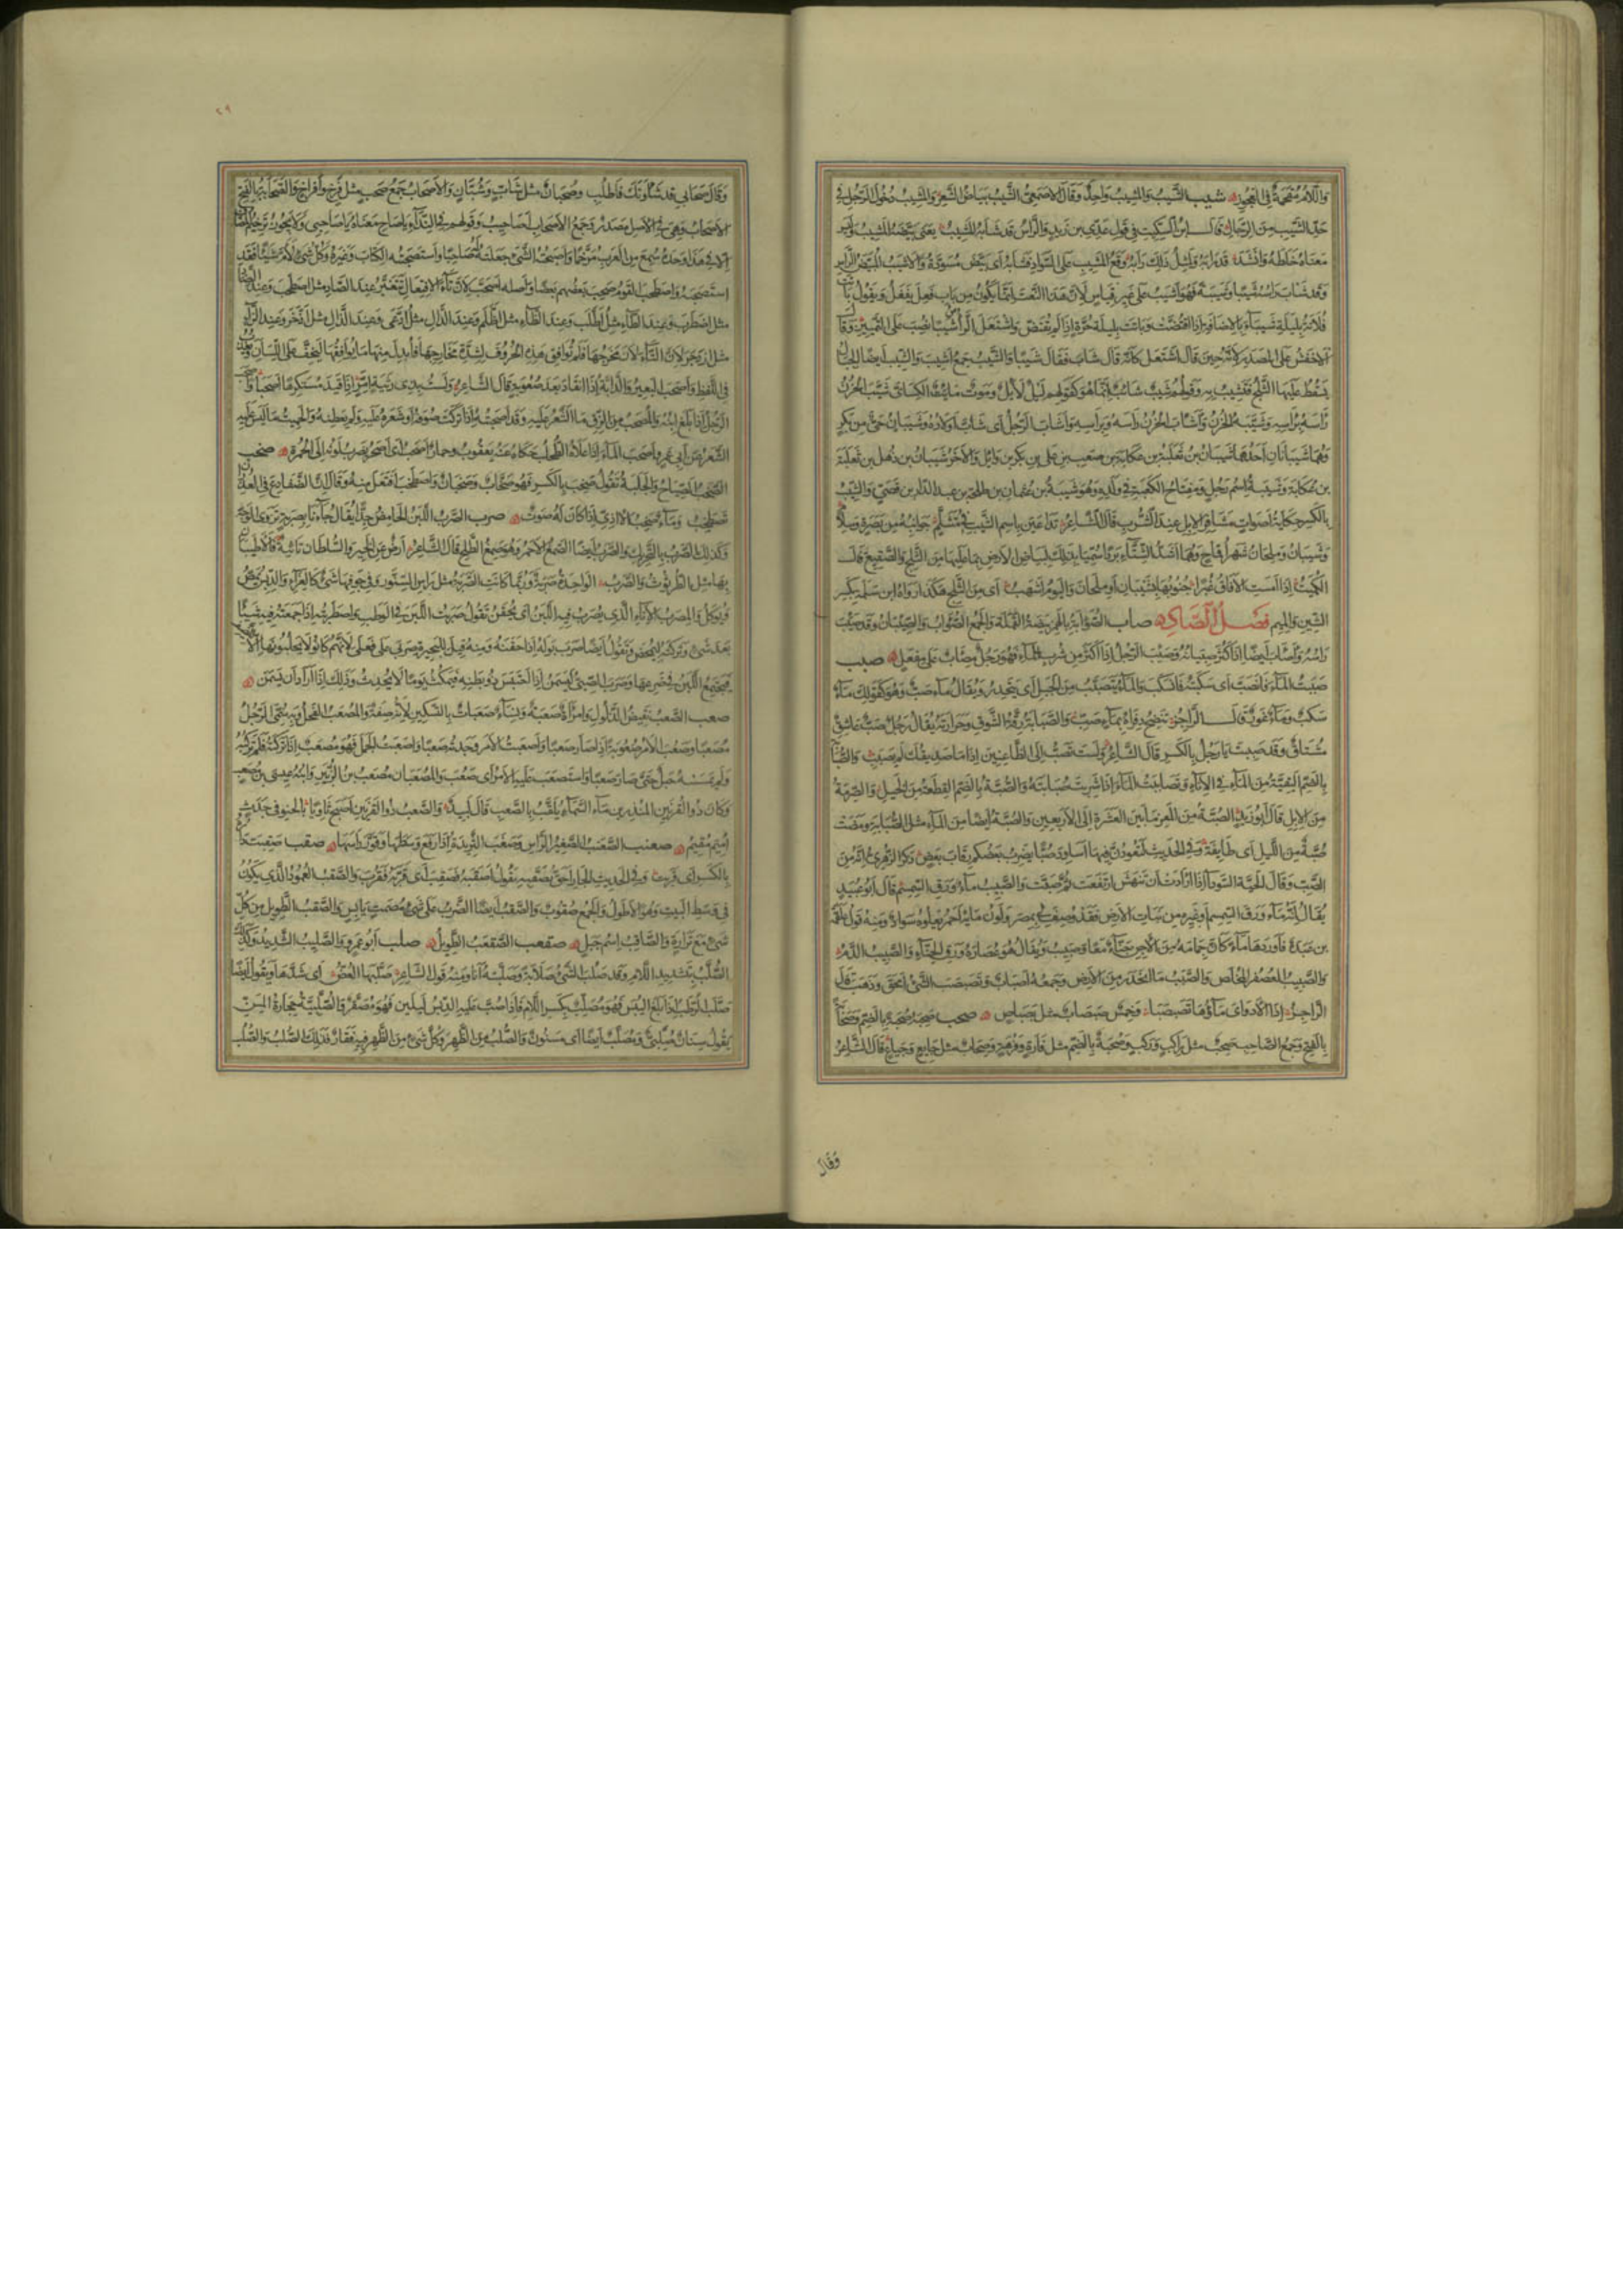 واللام مقحمة في العجوز شيب الشيب والمشيب واحد وقال الاصمعي الشيب بياض الشعر والمشيب دخول الرجل في
حد الشيب من الرجال قال ابن السكيت في قول عدي بن زيد والرأس قد شابه المشيب يعني بيضه المشيب وليس
معناه خالطه وانشد قد رابه ولمثل ذلك رابه وقع المشيب على السواد فشابه اي بيض مسوده والاشيب المبيض الرأس
وقد شاب رأسه شيبا وشيبة فهو اشيب على غير قياس لان هذا النعت انما يكون من باب فعل يفعل ويقول باتت
فلانة بليلة شيباء بالاضافة اذا افتضت وباتت بليلة حرة اذا لم تفتض واشتعل الرأس شيبا نصب على التمييز وقال
الاخفش على المصدر لانه حين قال اشتعل كانه قال شاب فقال شيبا والشيب جمع اشيب والشيب ايضا الجبال
يسقط عليها الثلج فتشيب به وقولهم شيب شائب انما هو كقولهم ليل لايل وموت مائت الكسائي شيب الحزن
رأسه برأسه وشيبه الحزن واشاب الحزن رأسه وبرأسه واشاب الرجل اي شاب اولاده وشيبان حي من بكر
وهما شيبانان احدهما شيبان بن ثعلبة بن عكابة بن صعب بن علي بن بكر بن وائل والاخر شيبان بن ذهل بن ثعلبة
بن عكابة وشيبة اسم رجل ومفتاح الكعبة في ولده وهو شيبة بن عثمان بن طلحة بن عبد الدار بن قصي والشيب
بالكسر حكاية اصوات مشافر الابل عند الشرب قال الشاعر تداعين باسم الشيب في متثلم جوانبه من بصرة وسلام
وشيبان وملحان شهرا قماح وهما اشد الشتاء بردا سميا بذلك لبياض الارض بما عليها من الثلج والصقيع قال
الكميت اذا امست الآفاق غبرا جنوبها بشيبان او ملحان واليوم اشهب اي من الثلج هكذا رواه ابن سلمة بكسر
الشين والميم فصل الصاد صأب الصؤابة بالهمز بيضة القملة والجمع الصؤاب والصئبان وقد صئب
رأسه وأصأب ايضا اذا كثر صئبانه وصئب الرجل اذا اكثر من شرب الماء فهو رجل مصأب على مفعل صبب
صببت الماء فانصب اي سكبته فانسكب والماء يتصبب من الجبل اي يتحدر ويقال ماء صب وهو كقولك ماء
سكب وماء غور قال الراجز تنضح ذفراه بماء صب والصبابة رقة الشوق وحرارته يقال رجل صب عاشق
مشتاق وقد صببت يا رجل بالكسر قال الشاعر ولست تصب الى الظاعنين اذا ما صديقك لم يصبب والصبابة
بالضم البقية من الماء في الاناء وتصاببت الماء اذا شربت صبابته والصبة بالضم القطعة من الخيل والصرمة
من الابل قال ابو زيد الصبة من المعز ما بين العشرة الى الاربعين والصبة ايضا من الماء مثل الصبابة ومضت
صبة من الليل اي طائفة وفي الحديث لتعودن فيها اساود صبا يضرب بعضكم رقاب بعض ذكر الزهري انه من
الصب وقال الحية السوداء اذا ارادت ان تنهش ارتفعت ثم صبت والصبيب ماء ورق السمسم قال ابو عبيد
يقال انه ماء ورق السمسم او غيره من نبات الارض فقد وصف لي بمصر ولون مائه احمر يعلوه سواد ومنه قول علقمة
بن عبدة فاوردها ماء كان جمامه من الاجن حناء معا وصبيب ويقال هو عصارة ورق الحناء والصبيب الدم
والصبيب العصفر المخلص والصبب ما انحدر من الارض وجمعه اصباب وتصبصب الشيء امحق وذهب قال
الراجز اذا الاداوى ماؤها تصبصبا وخمس صبصاب مثل بصباص صحب صحبه صحبة بالضم وصحابة
بالفتح وجمع الصاحب صحب مثل راكب وركب وصحبة بالضم مثل فاره وفرهة وصحاب مثل جائع وجياع قال الشاعر
وقال
٢٩
وقال صحابي قد شأونك فاطلب وصحبان مثل شاب وشبان والاصحاب جمع صحب مثل فرخ وافراخ والصحابة بالفتح
الاصحاب وهي في الاصل مصدر وجمع الاصحاب اصاحيب وقولهم في النداء يا صاح معناه يا صاحبي ولا يجوز ترخيم المضاف
الا في هذا وحده سمع من العرب مرخما واصحبته الشيء جعلته له صاحبا واستصحبته الكتاب وغيره وكل شيء لاءم شيئا فقد
استصحبه واصطحب القوم صحب بعضهم بعضا واصله اصتحب لان تاء الافتعال تتغير عند الصاد مثل اصطحب وعند الضاد
مثل اضطرب وعند الطاء مثل اطلب وعند الظاء مثل اظلم وعند الدال مثل ادعى وعند الذال مثل اذخر وعند الزاي
مثل ازدجر لان التاء لان مخرجها فلم توافق هذه الحروف لشدة مخارجها فابدل منها ما يوافقها ليخف على اللسان ويعذب
في اللفظ واصحب البعير والدابة اذا انقاد بعد صعوبة قال الشاعر ولست بذي رثية امر اذا قيد مستكرها اصحبا واصحب
الرجل اذا بلغ ابنه والمصحب من الزق ما الشعر عليه وقد اصحبته اذا تركت صوفه او شعره عليه ولم تعطنه والحميت ما ليس عليه
الشعر عن ابي عمرو واصحب الماء اذا علاه الطحلب حكاه عنه يعقوب وحمار اصحب اي اصحر يضرب لونه الى الحمرة صخب
الصخب الصياح والجلبة تقول صخب بالكسر فهو صخاب وصخبان واصطخب افتعل منه وقال ان الضفادع في الغدران
تصطخب وماء صخب الآذي اذا كان له صوت صرب الصرب اللبن الحامض جدا يقال جاءنا بصربة تزوي الوجه
وكذلك الصرب بالتحريك والصرب ايضا الصمغ الاحمر وهو صمغ الطلح قال الشاعر ارض عن الخير والسلطان نائية فالاطيبان
بها الطرثوث والصرب الواحدة صربة وربما كانت الصربة مثل رأس السنور في جوفها شيء كالغراء والدبس يمص
ويؤكل والمصرب الاناء الذي يصرب فيه اللبن اي يحقن تقول صربت اللبن في الوطب واصطربته اذا جمعته فيه شيئا
بعد شيء وتركته ليحمض وتقول ايضا صرب بوله اذا حقنه ومنه قيل للبحيرة صربى على فعلى لانهم كانوا لا يحلبونها الا للضيف
فيجتمع اللبن في ضرعها وصرب الصبي ليسمن اذا احتبس ذو بطنه فيمكث يوما لا يحدث وذلك اذا اراد ان يسمن
صعب الصعب نقيض الذلول وامرأة صعبة ونساء صعبات بالتسكين لانه صفة والمصعب الفحل وبه سمي الرجل
مصعبا وصعب الامر صعوبة اذا صار صعبا واصعبت الامر وجدته صعبا واصعبت الجمل فهو مصعب اذا تركته فلم تركبه
ولم يمسسه حبل حتى صار صعبا واستصعب عليه الامر اي صعب والمصعبان مصعب بن الزبير وابنه عيسى بن مصعب
وكان ذو القرنين المنذر بن ماء السماء يلقب بالصعب قال لبيد والصعب ذو القرنين اصبح ثاويا بالحنو في جدث
اميم مقيم صعنب الصعنب الصغير الرأس وصعنب الثريدة اذا رفع وسطها وقور رأسها صقب صقبت داره
بالكسر اي قربت وفي الحديث الجار احق بصقبه تقول اصقبه فصقب اي قربه فقرب والصقب العمود الذي يكون
في وسط البيت وهو الاطول والجمع صقوب والصقب ايضا الضرب على شيء مصمت يابس والصقب الطويل من كل
شيء مع ترارة والصاقب اسم جبل صقعب الصقعب الطويل صلب ابو عمرو والصليب الشديد وكذلك
الصلب بتشديد اللام وقد صلب الشيء صلابة وصلبته انا ومنه قول الشاعر صلبها العض اي شدها ويقول ايضا
صلب الرطب اذا بلغ اليبس فهو مصلب بكسر اللام فاذا صب عليه الدبس ليلين فهو مصقر والصلبية حجارة المسن
يقول سنان صلبي ومصلب ايضا اي مسنون والصلب من الظهر وكل شيء من الظهر فيه فقار فذلك الصلب والصلب